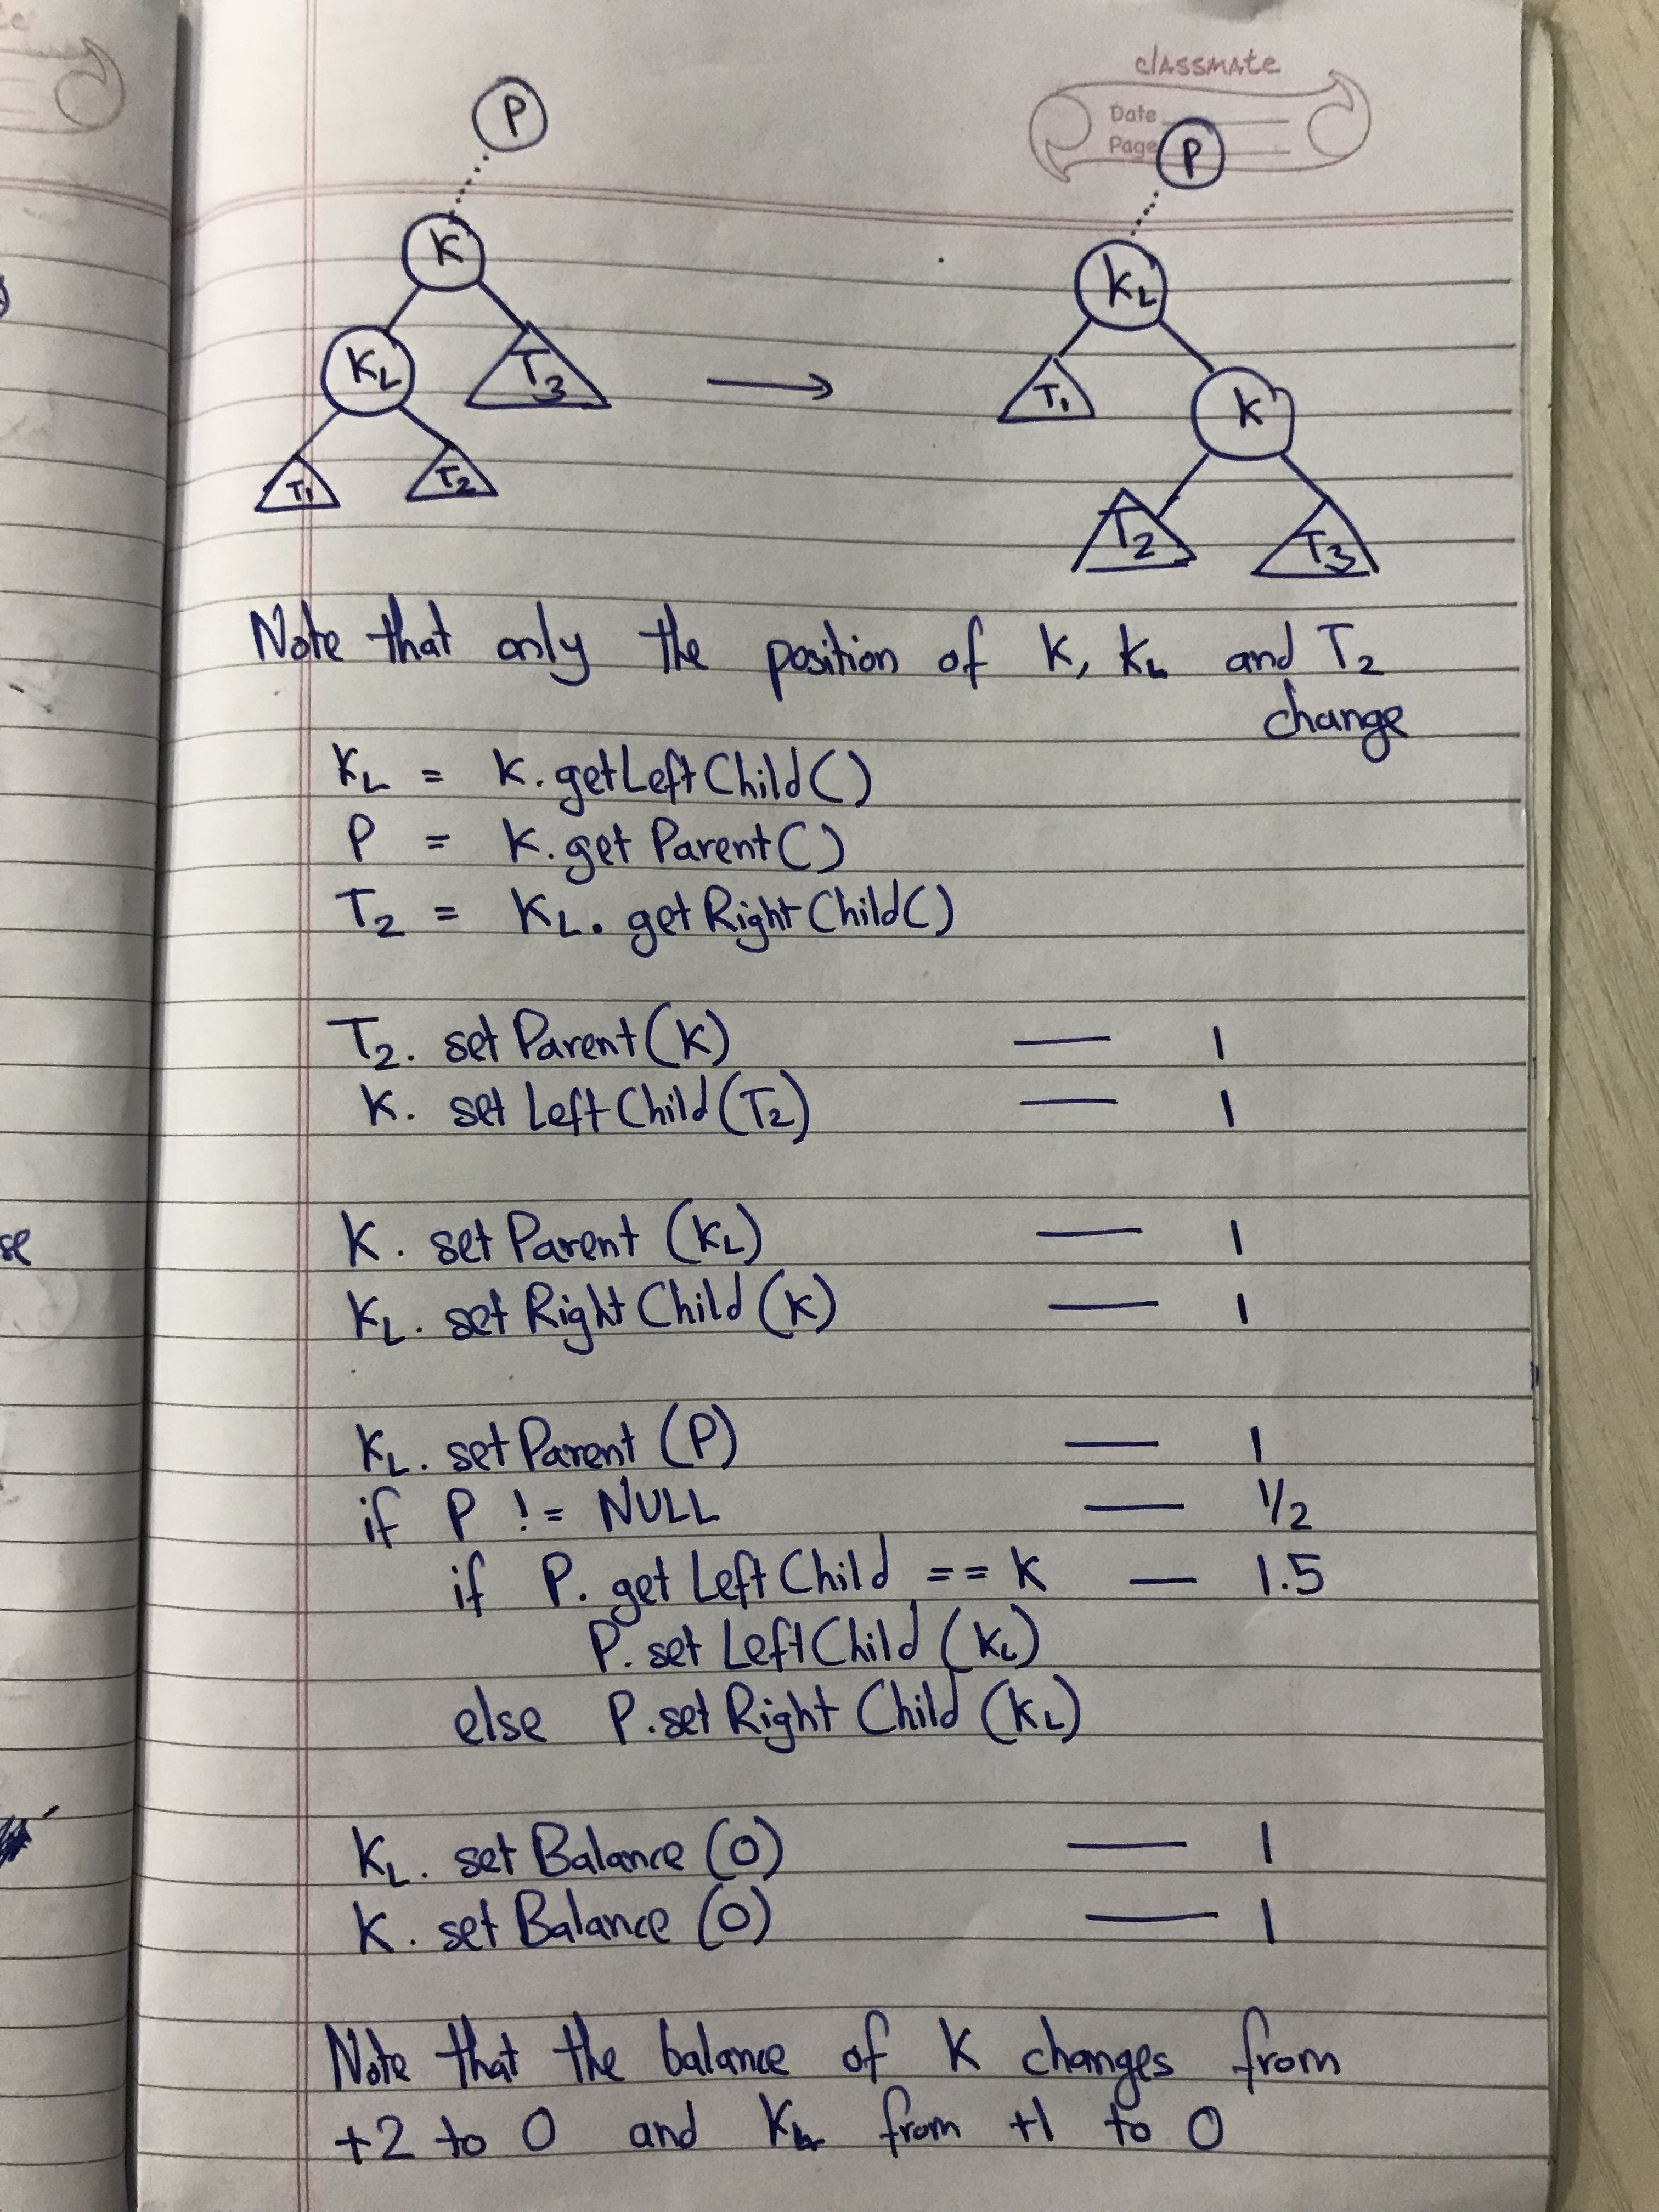 classmate
Date
Page
P
P
K
KL
KL
T3
T1
K
T1
T2
T2
T3
Note that only the position of K, KL and T2
change
KL = K.getLeftChild()
P = K.getParent()
T2 = KL.getRightChild()
T2.setParent(K) — 1
K.setLeftChild(T2) — 1
se
K.setParent(KL) — 1
KL.setRightChild(K) — 1
KL.setParent(P) — 1
if P != NULL — 1/2
if P.getLeftChild == K — 1.5
P.setLeftChild(KL)
else P.setRightChild(KL)
KL.setBalance(0) — 1
K.setBalance(0) — 1
Note that the balance of K changes from
+2 to 0 and KL from +1 to 0